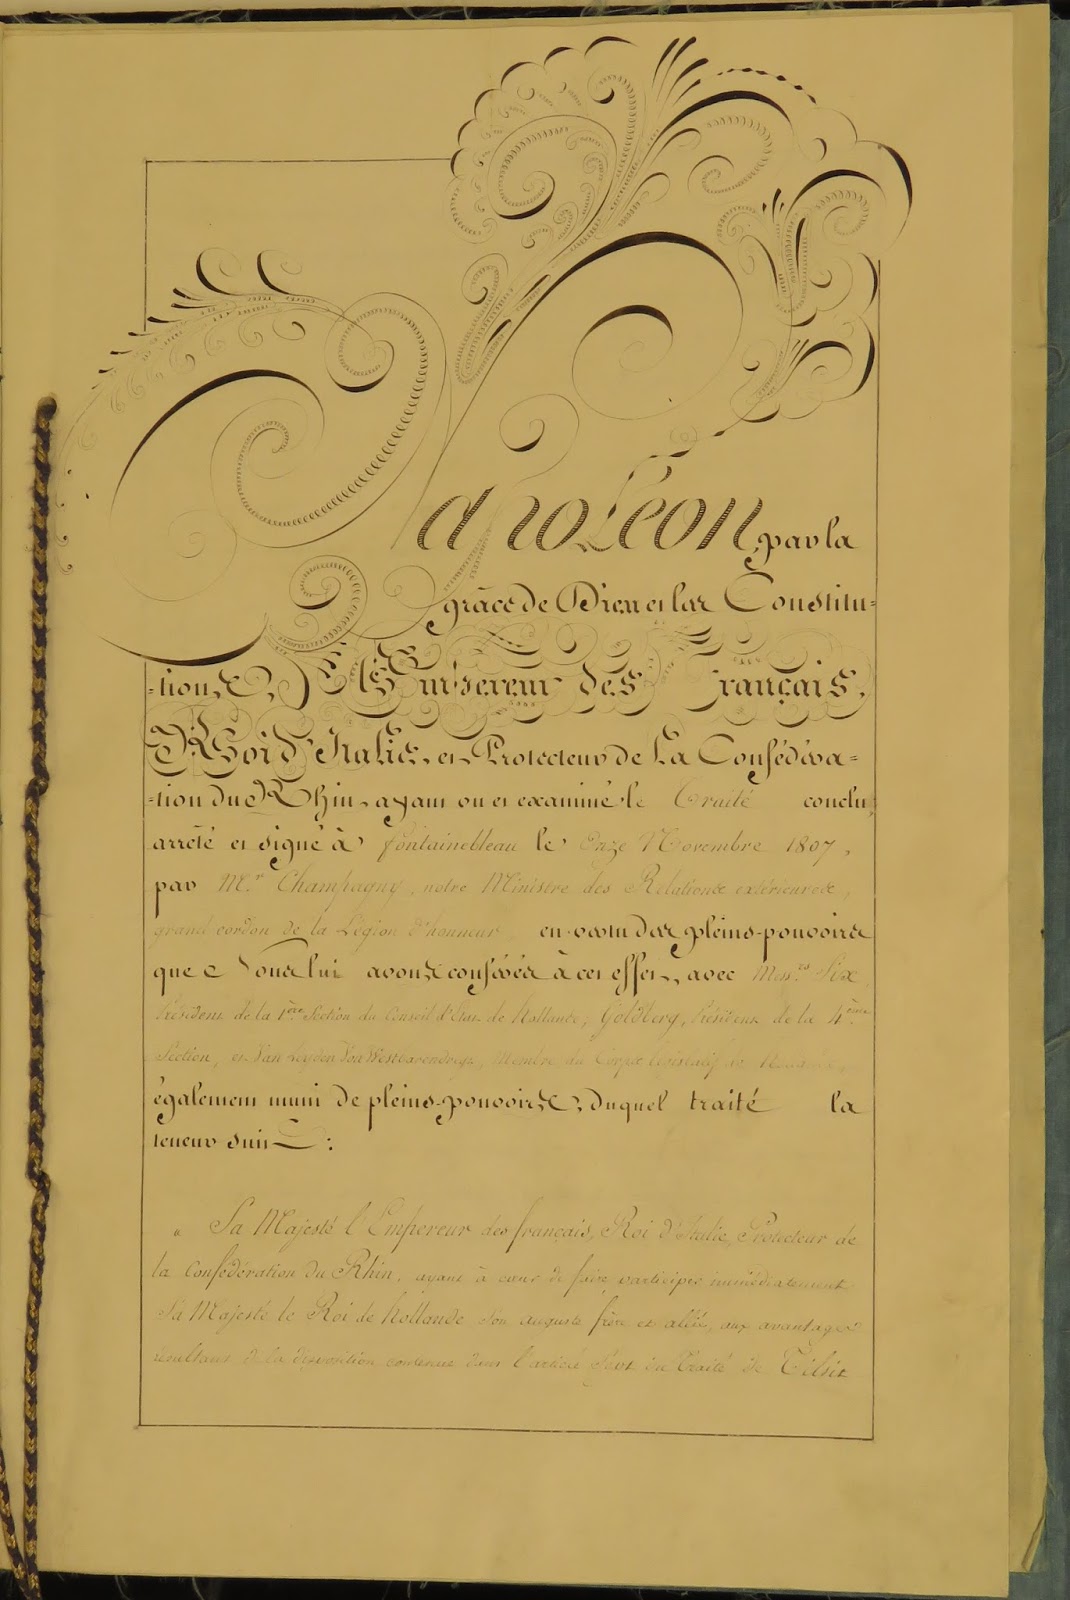 Napoléon, par la
grâce de Dieu et les Constitu=
=tions, Empereur des Français,
Roi d'Italie, et Protecteur de la Confédéra=
=tion du Rhin, ayant vu et examiné le Traité conclu,
arrêté et signé à fontainebleau le Onze Novembre 1807,
par M.r Champagny, notre Ministre des Relations extérieures,
grand cordon de la Légion d'honneur, en vertu des pleins-pouvoirs
que Nous lui avons conférés à cet effet, avec Mess.rs Six,
Président de la 1ère Section du Conseil d'Etat de hollande, Goldberg, Président de la 4ème
Section, et Van Leyden Van Westbarendregt, Membre du Corps législatif de hollande,
également muni de pleins-pouvoirs, duquel traité la
teneur suit:
" Sa Majesté l'Empereur des français, Roi d'Italie, Protecteur de
la Confédération du Rhin, ayant à cœur de faire participer immédiatement
Sa Majesté le Roi de hollande Son auguste frère et allié, aux avantages
résultans de la disposition contenue dans l'article Sept du Traité de Tilsit